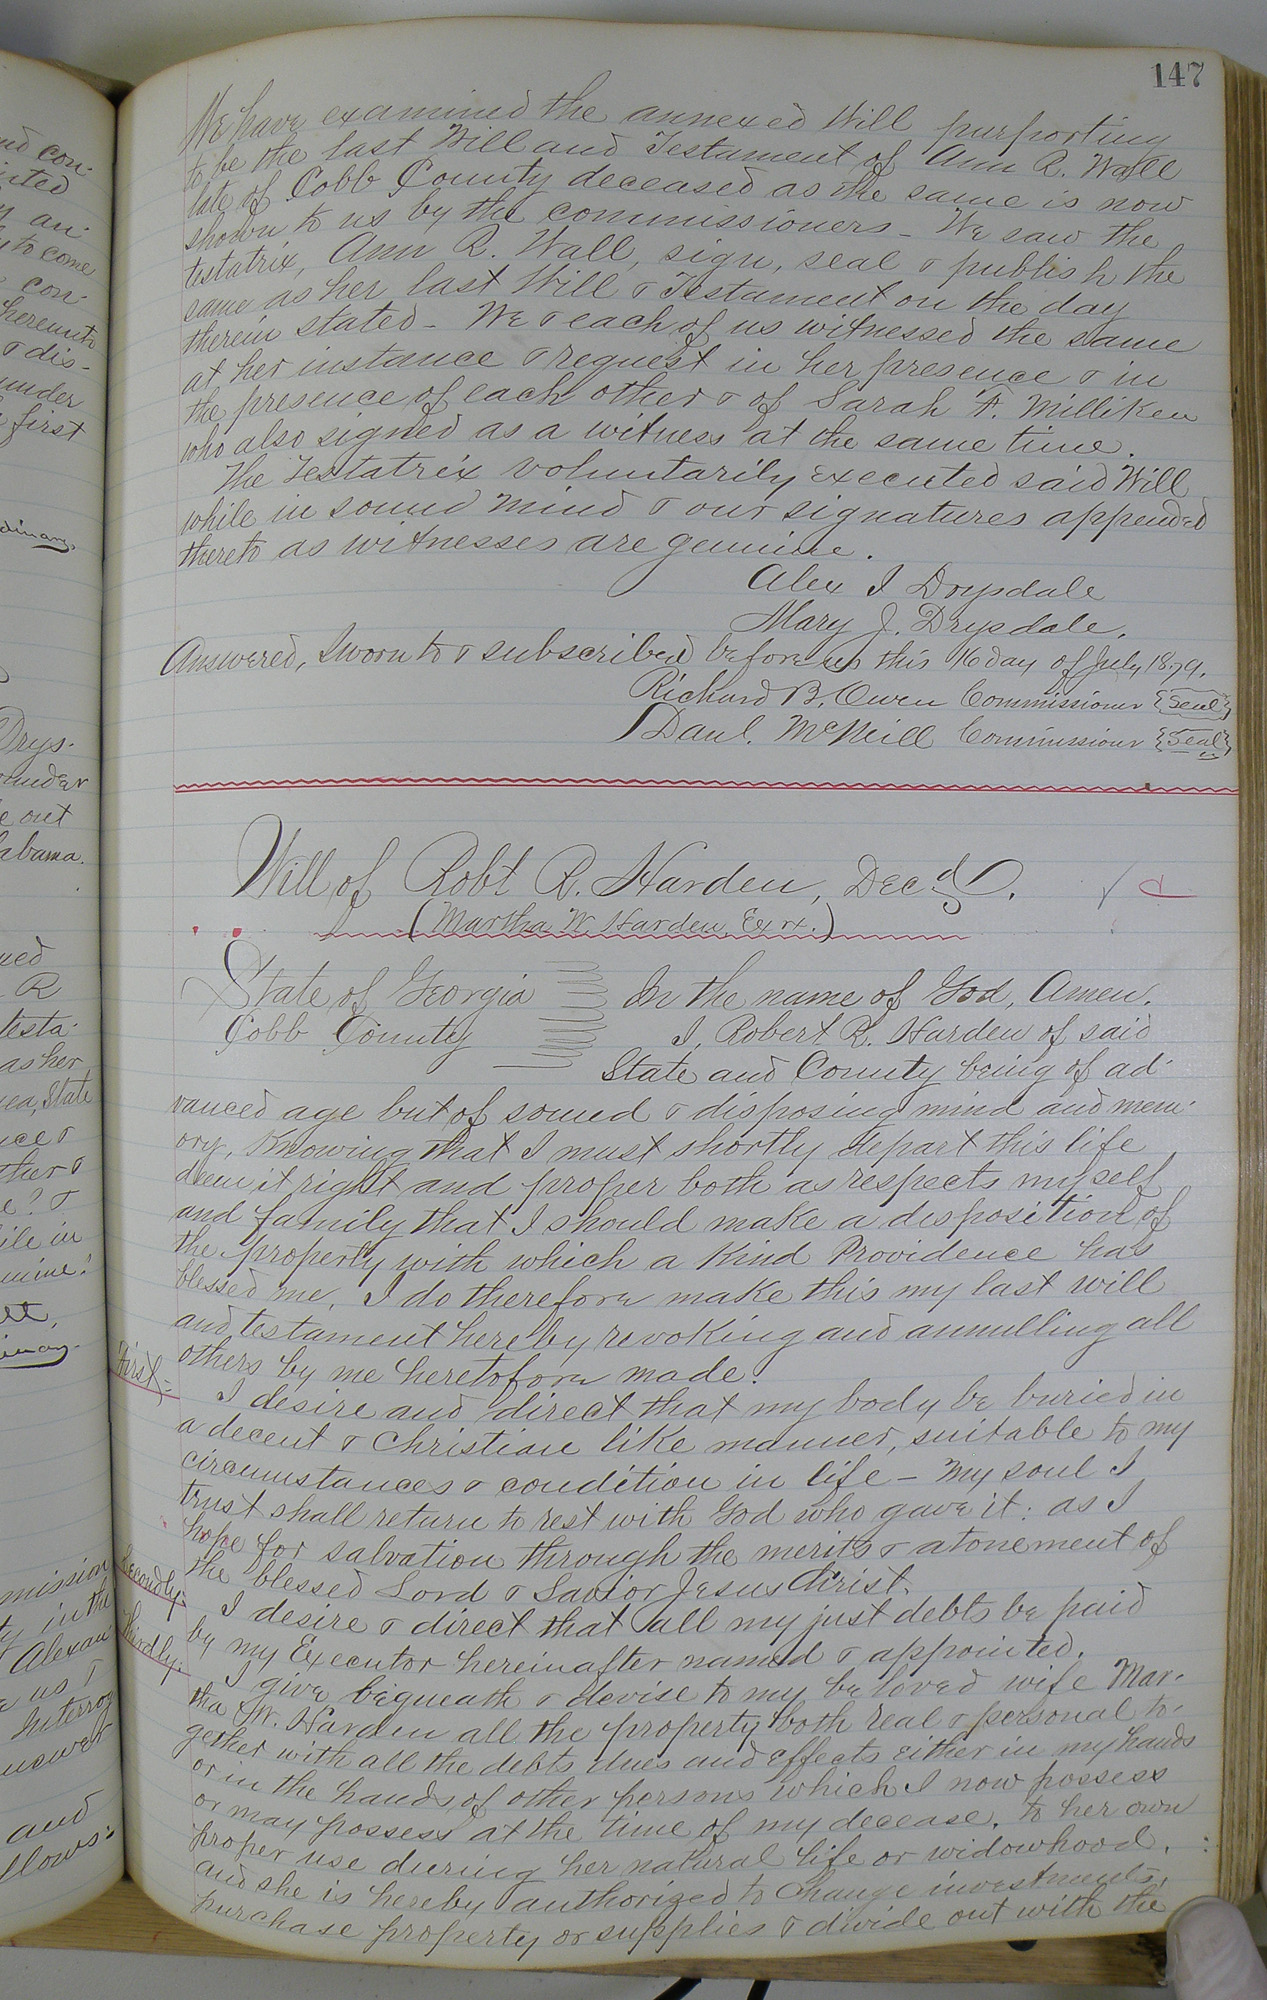 147
We have examined the annexed Will purporting
to be the last Will and Testament of Ann R. Wall
late of Cobb County deceased as the same is now
shown to us by the commissioners - We saw the
testatrix, Ann R. Wall, sign, seal & publish the
same as her last Will & Testament on the day
therein stated - We & each of us witnessed the same
at her instance & request in her presence & in
the presence of each other & of Sarah F. Milliken
who also signed as a witness at the same time.
The Testatrix voluntarily executed said Will
while in sound mind & our signatures appended
thereto as witnesses are genuine.
Alex J Drysdale
Mary J. Drysdale.
Answered, Sworn to & subscribed before us this 16 day of July 1879.
Richard B. Owen Commissioner {Seal}
Danl. McNeill Commissioner {Seal}
Will of Robt R. Harden, Decd.
(Martha W. Harden, Exrx.)
State of Georgia In the name of God, Amen.
Cobb County I, Robert R. Harden of said
State and County being of ad-
vanced age but of sound & disposing mind and mem-
ory, Knowing that I must shortly depart this life
deem it right and proper both as respects myself
and family that I should make a disposition of
the property with which a Kind Providence has
blessed me, I do therefore make this my last will
and testament hereby revoking and annulling all
others by me heretofore made.
First,= I desire and direct that my body be buried in
a decent & Christian like manner, suitable to my
circumstances & condition in life - My soul I
trust shall return to rest with God who gave it: as I
hope for salvation through the merits & atonement of
the blessed Lord & Savior Jesus Christ.
Secondly: I desire & direct that all my just debts be paid
by my Executor hereinafter named & appointed.
Thirdly: I give bequeath & devise to my beloved wife Mar-
tha W. Harden all the property both real & personal to-
gether with all the debts dues and effects either in my hands
or in the hands of other persons which I now possess
or may possess at the time of my decease, to her own
proper use during her natural life or widowhood,
and she is hereby authorized to change investments,
purchase property or supplies & divide out with the